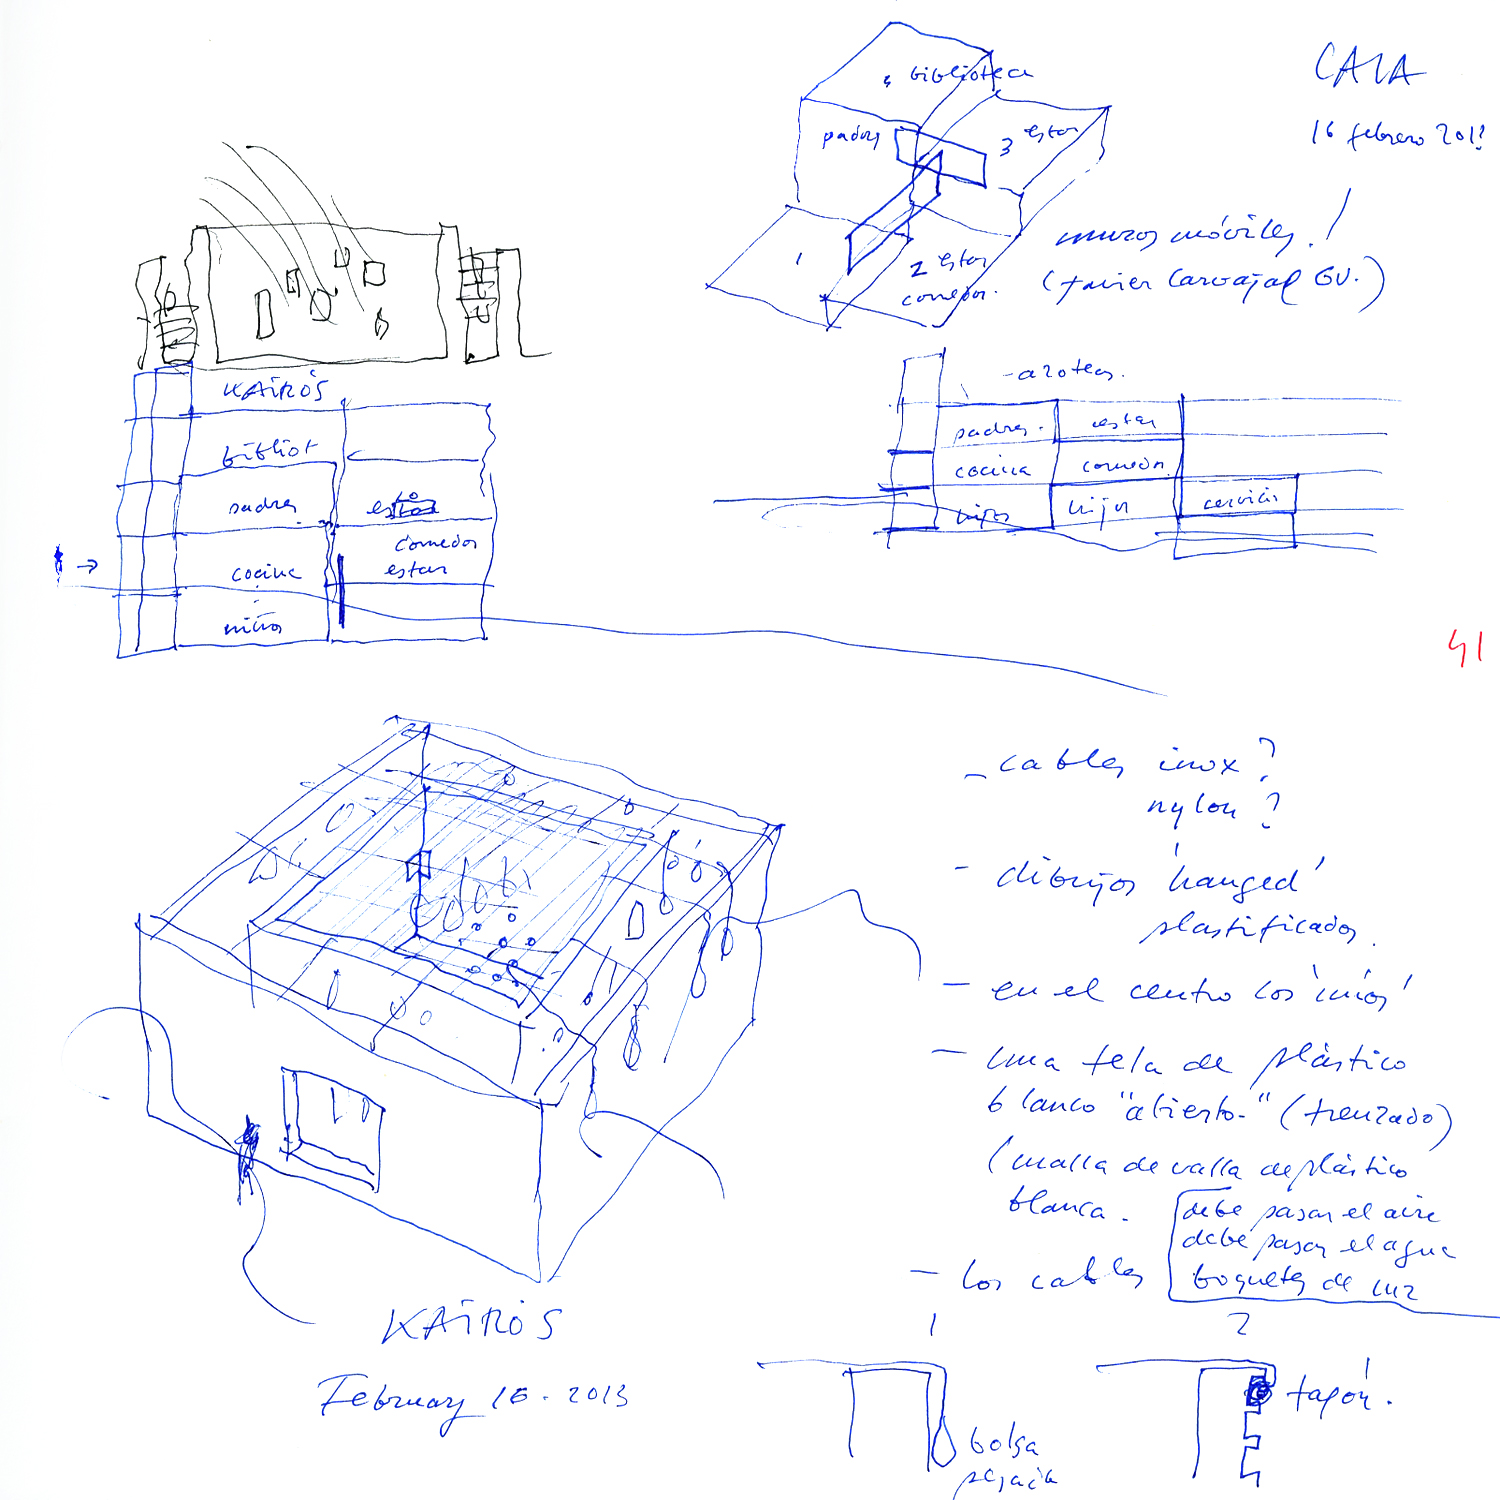 CALA
16 febrero 201
4 biblioteca
padres
3 estar
1
2 estar
comedor.
muros móviles!
(Javier Carvajal GV.)
KAIRÓS
bibliot
padres
cocina
comedor
estar
niños
- azotea.
padres.
estar
cocina
comedor
hijos
hijos
servicio
41
- cables inox?
nylon?
- dibujos 'hanged'
plastificados.
- en el centro los 'míos'
- una tela de plástico
blanco "abierto" (trenzado)
(malla de valla de plástico
blanca.
debe pasar el aire
debe pasar el agua
boquetes de luz
- los cables
KAIRÓS
February 16. 2013
1
2
bolsa
tapón.